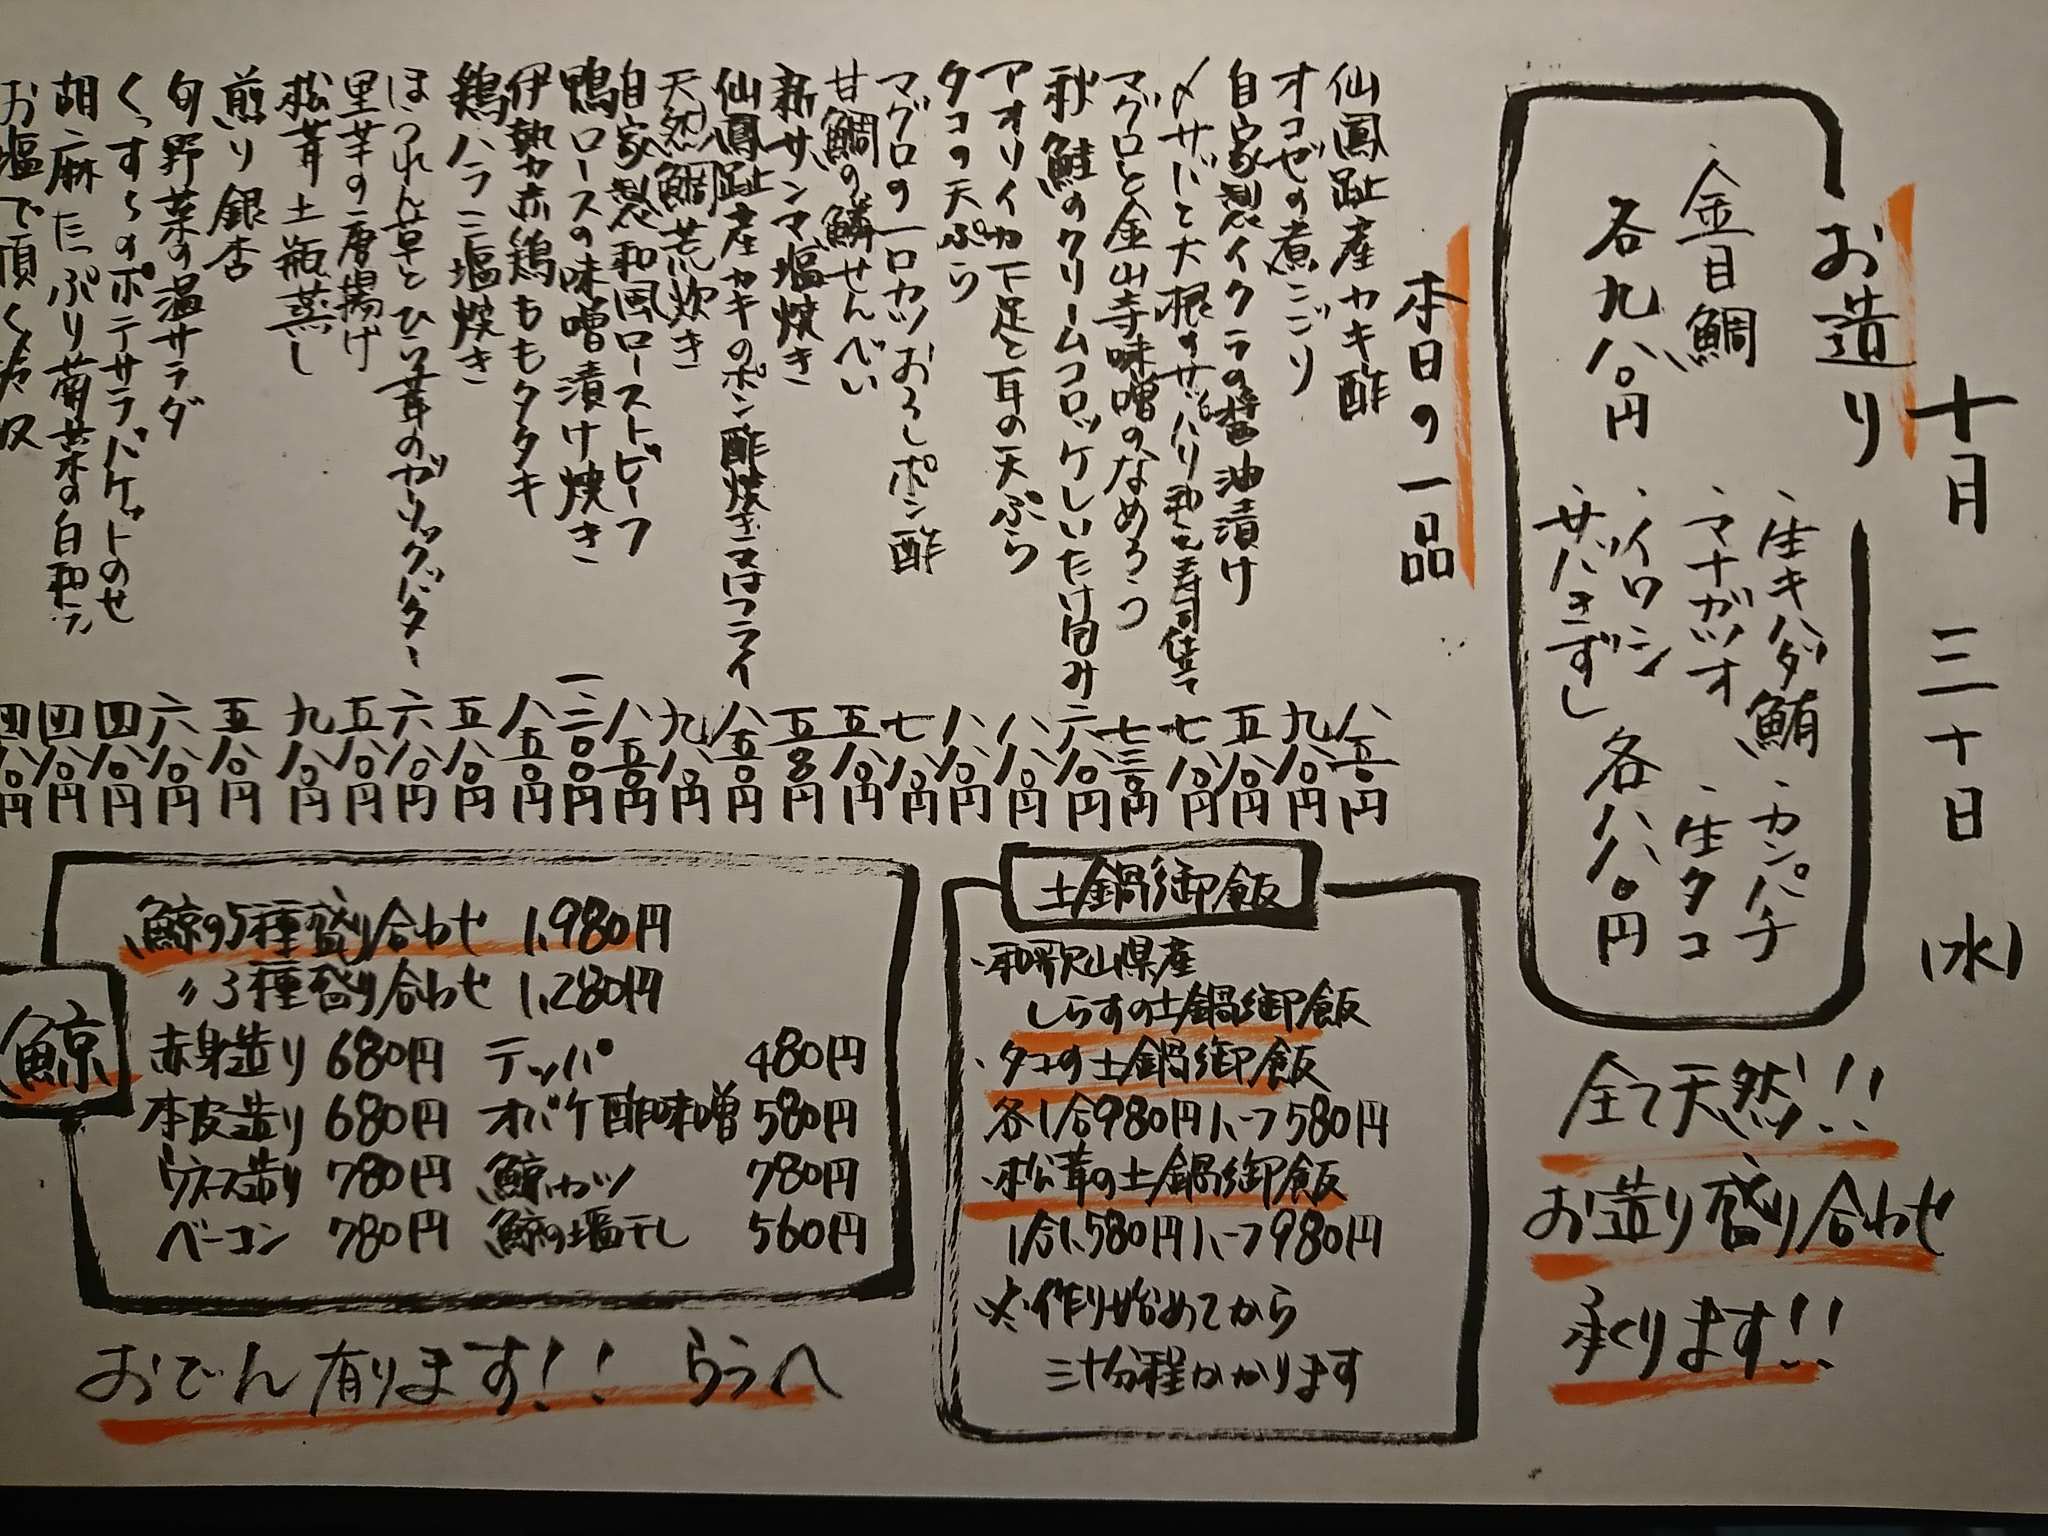 十月三十日(水)
お造り
・生キハダ鮪・カンパチ
・マナガツオ・生タコ
・イワシ
・サバきずし 各八八〇円
・金目鯛
各九八〇円
全て天然!!
お造り盛り合わせ
承ります!!
本日の一品
仙鳳趾産カキ酢 八五〇円
オコゼの煮こごり 九八〇円
自家製イクラの醤油漬け 五八〇円
〆サバと大根のサッパリ和え寿司仕立て 七八〇円
マグロと金山寺味噌のなめろう 七三〇円
秋鮭のクリームコロッケしいたけ包み 六八〇円
アオリイカ下足と耳の天ぷら 八八〇円
タコの天ぷら 八八〇円
マグロの一口カツおろしポン酢 七八〇円
甘鯛の鱗せんべい 五八〇円
新サンマ塩焼き 五五〇円
仙鳳趾産カキのポン酢焼き又はフライ 八五〇円
天然鯛荒炊き 九八〇円
自家製和風ローストビーフ 八五〇円
鴨ロースの味噌漬け焼き 一三〇〇円
伊勢赤鶏ももタタキ 八五〇円
鶏ハラミ塩焼き 五八〇円
ほうれん草とひら茸のガーリックバター 六八〇円
里芋の唐揚げ 五八〇円
松茸土瓶蒸し 九八〇円
煎り銀杏 五八〇円
旬野菜の温サラダ 六八〇円
くっすらのポテサラバケットのせ 四八〇円
胡麻たっぷり菊菜の白和え 四八〇円
お塩で頂く 四八〇円
土鍋御飯
・和歌山県産
しらすの土鍋御飯
・タコの土鍋御飯
各1合980円ハーフ580円
・松茸の土鍋御飯
1合1,580円ハーフ980円
※作り始めてから
三十分程かかります
鯨
鯨の5種盛り合わせ 1,980円
〃3種盛り合わせ 1,280円
赤身造り 680円 テッパ 480円
本皮造り 680円 オバケ酢味噌 580円
ウネス造り 780円 鯨カツ 780円
ベーコン 780円 鯨の塩干し 560円
おでん有ります!! うらへ